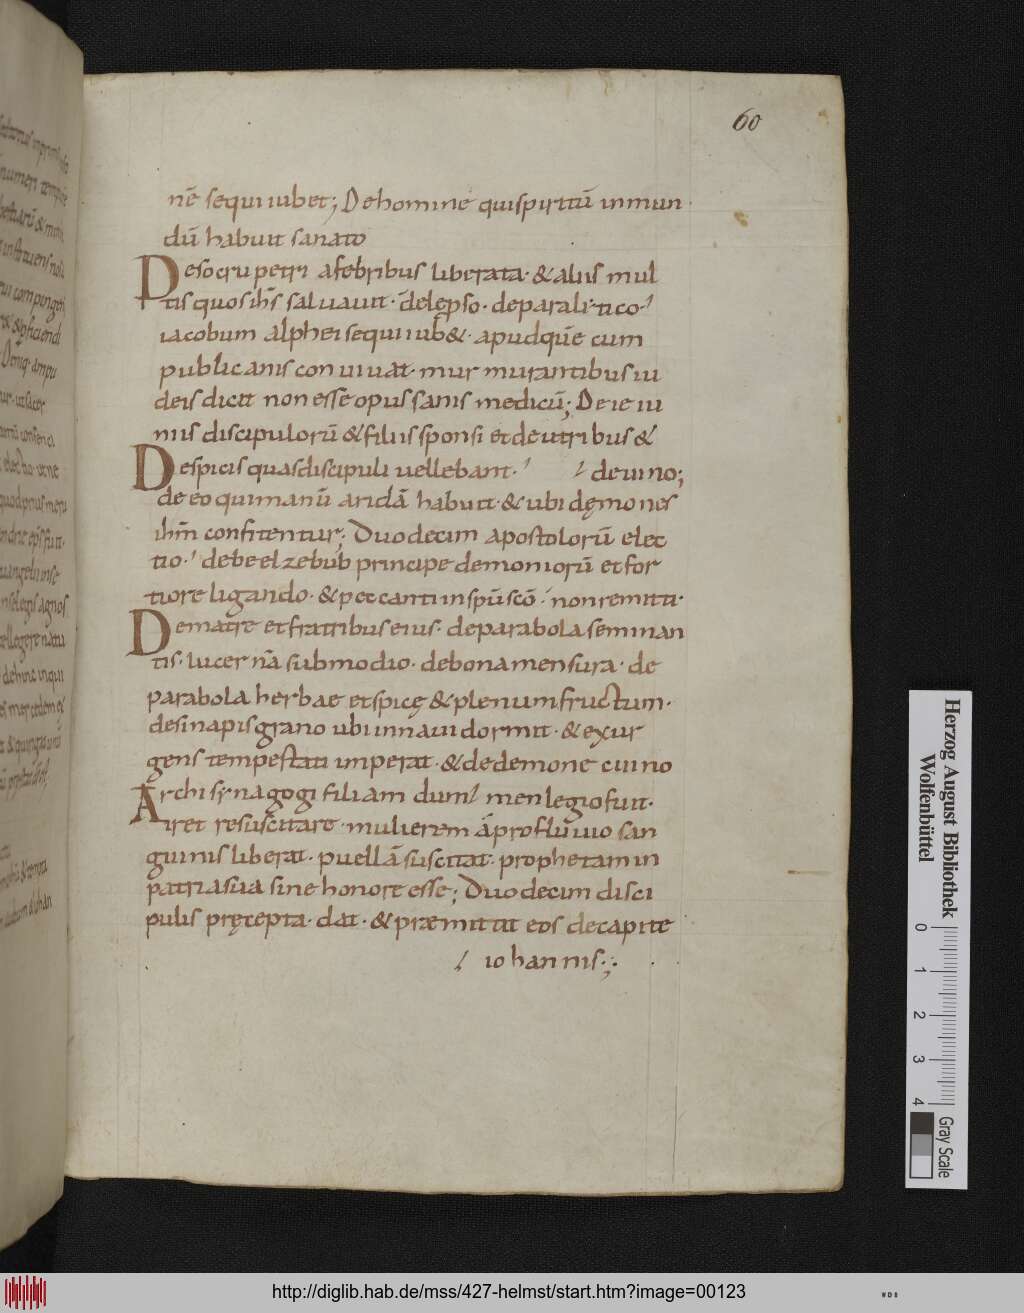 60
nē sequi iubet; De homine qui spiritū inmun
dū habuit sanato
De socru petri a febribus liberata· & aliis mul
tis quos ihs̄ saluauit· de lępso· de paralitico·
iacobum alphei sequi iub&· apud quē cum
publicanis conuiuat· murmurantibus iu
deis dicit non esse opus sanis medicū; De ieiu
niis discipulorū & filiis sponsi et de utribus &
De spicis quas discipuli uellebant· de uino;
de eo qui manū aridā habuit· & ubi dęmones
ihm̄ confitentur; Duodecim apostolorū elec
tio· de beelzebub principe demoniorū et for
tiore ligando· & peccanti in sp̄u sc̄o· non remitti·
De matre et fratribus eius· de parabola seminan
tis· lucernā sub modio· de bona mensura· de
parabola herbae et spicę & plenum fructum·
de sinapis grano ubi in naui dormit· & exur
gens tempestati imperat· & de demone cui no
Archisynagogi filiam dum men legio fuit·
iret resuscitare· mulierem a profluuio san
guinis liberat· puellā suscitat· prophetam in
patria sua sine honore esse; Duodecim disci
pulis pręcepta· dat· & praemittit eos de capite
iohannis;
Herzog August Bibliothek
Wolfenbüttel
0 1 2 3 4
Gray Scale
http://diglib.hab.de/mss/427-helmst/start.htm?image=00123